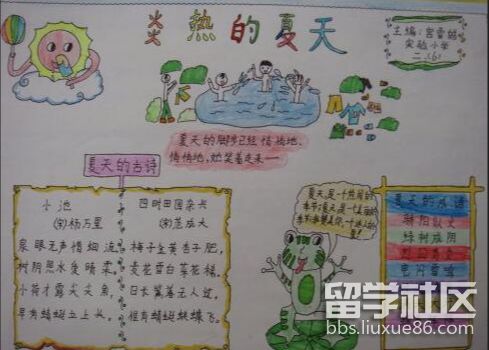 炎热的夏天
主编:宫雪
实验小学
二.(6)
夏天的脚步已经悄悄地、
悄悄地,她笑着走来——
夏天的古诗
小池
(宋)杨万里
泉眼无声惜细流
树阴照水爱晴柔,
小荷才露尖尖角,
早有蜻蜓立上头。
四时田园杂兴
(宋)范成大
梅子金黄杏子肥,
麦花雪白菜花稀。
日长篱着无人过,
惟有蜻蜓蛱蝶飞。
夏天,是一个炎热的
季节;夏天,是一个美丽的
夏天的成语
骄阳似火
绿树成阴
烈日炎炎
电闪雷鸣
留学社区
bbs.liuxue86.com